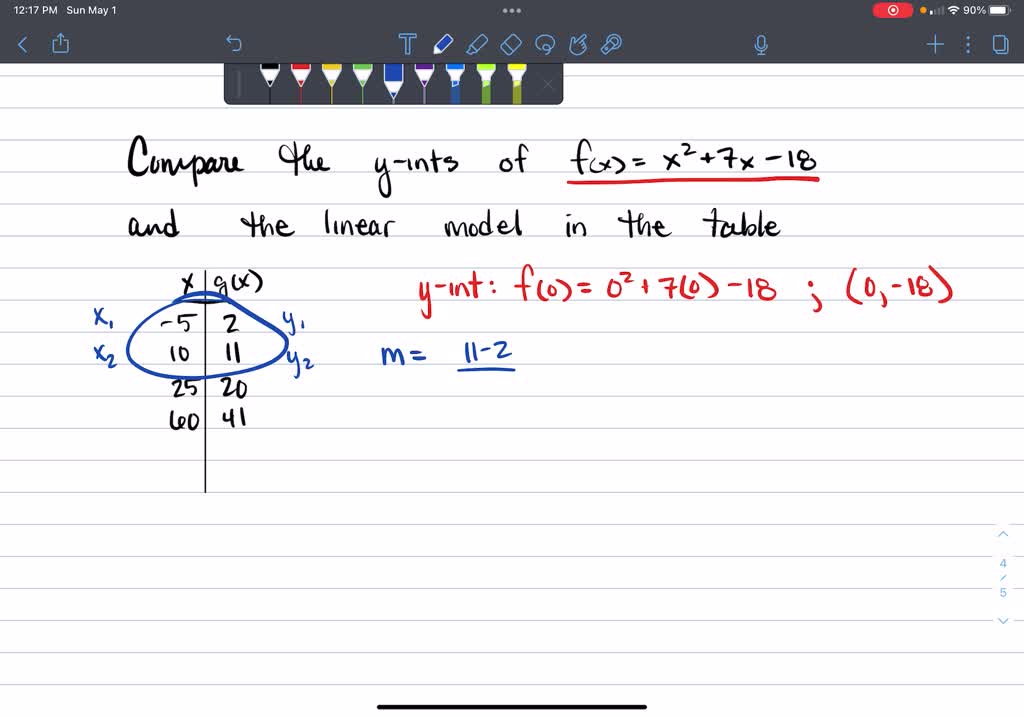 12:17 PM Sun May 1
90%
T
Compare the y-ints of f(x) = x² + 7x - 18
and the linear model in the table
x g(x)
y-int: f(0) = 0² + 7(0) - 18 ; (0, -18)
x₁ -5 2 y₁
x₂ 10 11 y₂
m = 11-2
25 20
60 41
4
/
5